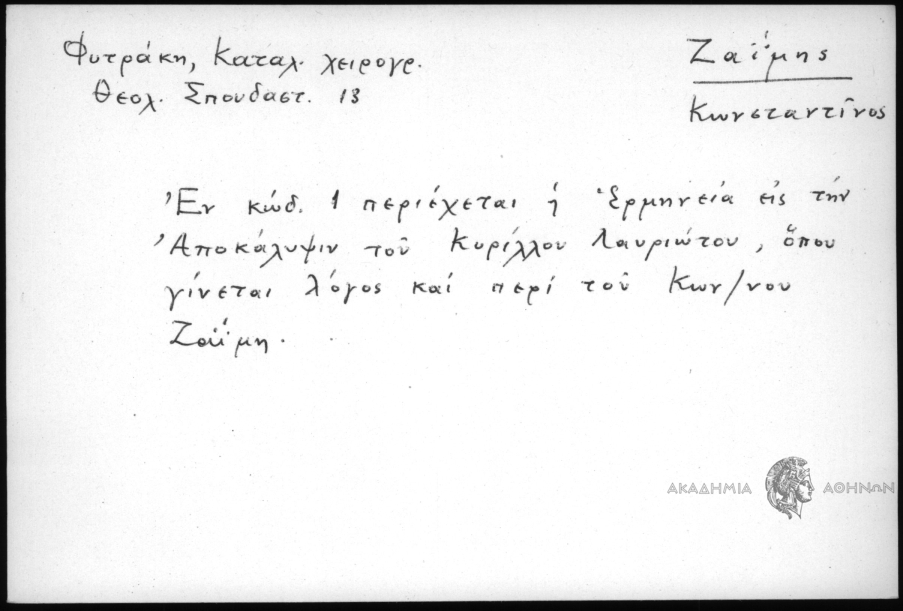 Φυτράκη, Καταλ. χειρογρ.
Θεολ. Σπουδαστ. 13
Ζαΐμης
Κωνσταντῖνος
Ἐν κώδ. 1 περιέχεται ἡ Ἑρμηνεία εἰς τὴν
Ἀποκάλυψιν τοῦ Κυρίλλου Λαυριώτου, ὅπου
γίνεται λόγος καί περί τοῦ Κων/νου
Ζαΐμη.
ΑΚΑΔΗΜΙΑ ΑΘΗΝΩΝ